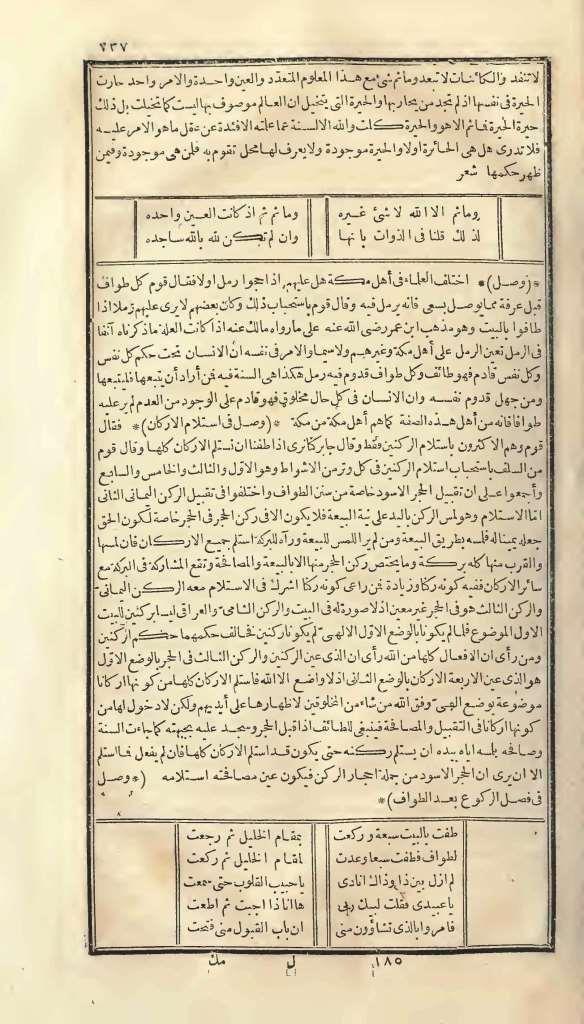 ٧٣٧
لا تنفد والكائنات لا تبعد وما ثم شئ مع هذا المعلوم المتعدد والعين واحدة والامر واحد حارت
الحيرة فى نفسها اذ لم تجد من يحار بها والحيرة التى يتخيل ان العالم موصوف بها ليست كما تخيلت بل ذلك
حيرة الحيرة فما ثم الا هو والحيرة كلت والله الالسنة عما علمته الافئدة عن عقل ما هو الامر عليه
فلا تدرى هل هى الحائرة اولا والحيرة موجودة ولا يعرف لها محل تقوم به فلمن هى موجودة وفيمن
ظهر حكمها شعر
وما ثم الا الله لا شئ غيره وما ثم ثم اذ كانت العين واحده
لذلك قلنا فى الذوات بانها وان لم تكن لله بالله ساجده
*(وصل)* اختلف العلماء فى أهل مكة هل عليهم اذا حجوا رمل اولا فقال قوم كل طواف
قبل عرفة مما يوصل بسعى فانه يرمل فيه وقال قوم باستحباب ذلك وكان بعضهم لا يرى عليهم رملا اذا
طافوا بالبيت وهو مذهب ابن عمر رضى الله عنه على ما رواه مالك عنه اذا كانت العلة ما ذكرناه آنفا
فى الرمل تعين الرمل على أهل مكة وغيرهم ولا سيما والامر فى نفسه ان الانسان تحت حكم كل نفس
وكل نفس قادم فهو طائف وكل طواف قدوم فيه رمل هكذا هى السنة فيه فمن أراد أن يتبعها فليتبعها
ومن جهل قدوم نفسه وان الانسان فى كل حال مخلوق فهو قادم على الوجود من العدم لم ير عليه
طوافا فانه من أهل هذه الصفة كما هم أهل مكة من مكة *(وصل فى استلام الاركان)* فقال
قوم وهم الاكثرون باستلام الركنين فقط وقال جابر كنا نرى اذا طفنا ان نستلم الاركان كلها وقال قوم
من السلف باستحباب استلام الركنين فى كل وتر من الاشواط وهو الاول والثالث والخامس والسابع
وأجمعوا على ان تقبيل الحجر الاسود خاصة من سنن الطواف واختلفوا فى تقبيل الركن اليمانى الثانى
اما الاستلام وهو لمس الركن باليد على نية البيعة فلا يكون الا فى ركن الحجر فى الحجر خاصة لكون الحق
جعله يمينا له فلمسه بطريق البيعة ومن لم ير اللمس للبيعة ورآه للبركة استلم جميع الاركان فان لمسها
والقرب منها كله بركة وما يختص ركن الحجر منها الا بالبيعة والمصافحة وتقع المشاركة فى البركة مع
سائر الاركان ففيه كونه ركنا وزيادة فمن راعى كونه ركنا اشرك فى الاستلام معه الركن اليمانى
والركن الثالث هو فى الحجر غير معين اذ لا صورة له فى البيت والركن الشامى والعراقى ليسا بركنين للبيت
الاول الموضوع فلما لم يكونا بالوضع الاول الالهى لم يكونا ركنين فخالف حكمهما حكم الركنين
ومن رأى ان الافعال كلها من الله رأى ان الذى عين الركنين والركن الثالث فى الحجر بالوضع الاول
هو الذى عين الاربعة الاركان بالوضع الثانى اذ لا واضع الا الله فاستلم الاركان كلها من كونها اركانا
موضوعة بوضع الهى وفق الله من شاء من المخلوقين لاظهارها على أيديهم ولكن لا دخول لها من
كونها اركانا فى التقبيل والمصافحة فينبغى للطائف اذا قبل الحجر وسجد عليه بجبهته كما جاءت السنة
وصافحه بلمسه اياه بيده ان يستلم ركنه حتى يكون قد استلم الاركان كلها فان لم يفعل فما استلم
الا ان يرى ان الحجر الاسود من جملة احجار الركن فيكون عين مصافحته استلامه *(وصل
فى فصل الركوع بعد الطواف)*
طفت بالبيت سبعة وركعت بمقام الخليل ثم رجعت
لطواف فطفت سبعا وعدت لمقام الخليل ثم ركعت
لم ازل بين ذا وذاك انادى يا حبيب القلوب حتى سمعت
يا عبيدى فقلت لبيك ربى ها انا ذا اجبت ثم اطعت
فامروا بالذى تشاؤون منى ان باب القبول منى فتحت
١٨٥ ل مك